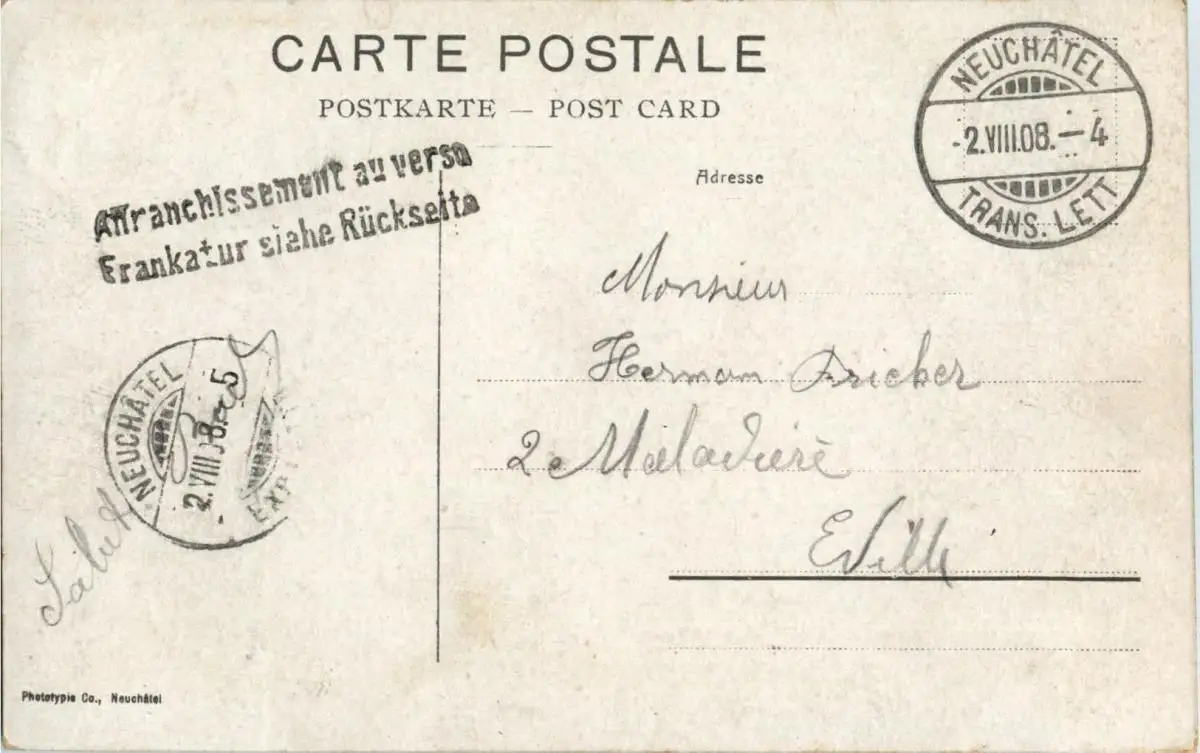 CARTE POSTALE
POSTKARTE — POST CARD
Affranchissement au verso
Frankatur siehe Rückseite
Adresse
NEUCHÂTEL
-2.VIII.08.—4
TRANS. LETT
Monsieur
Herman Fricker
2 Maladière
E/Ville
NEUCHÂTEL
2.VIII 08.-5
EXP
Salut
Phototypie Co., Neuchâtel